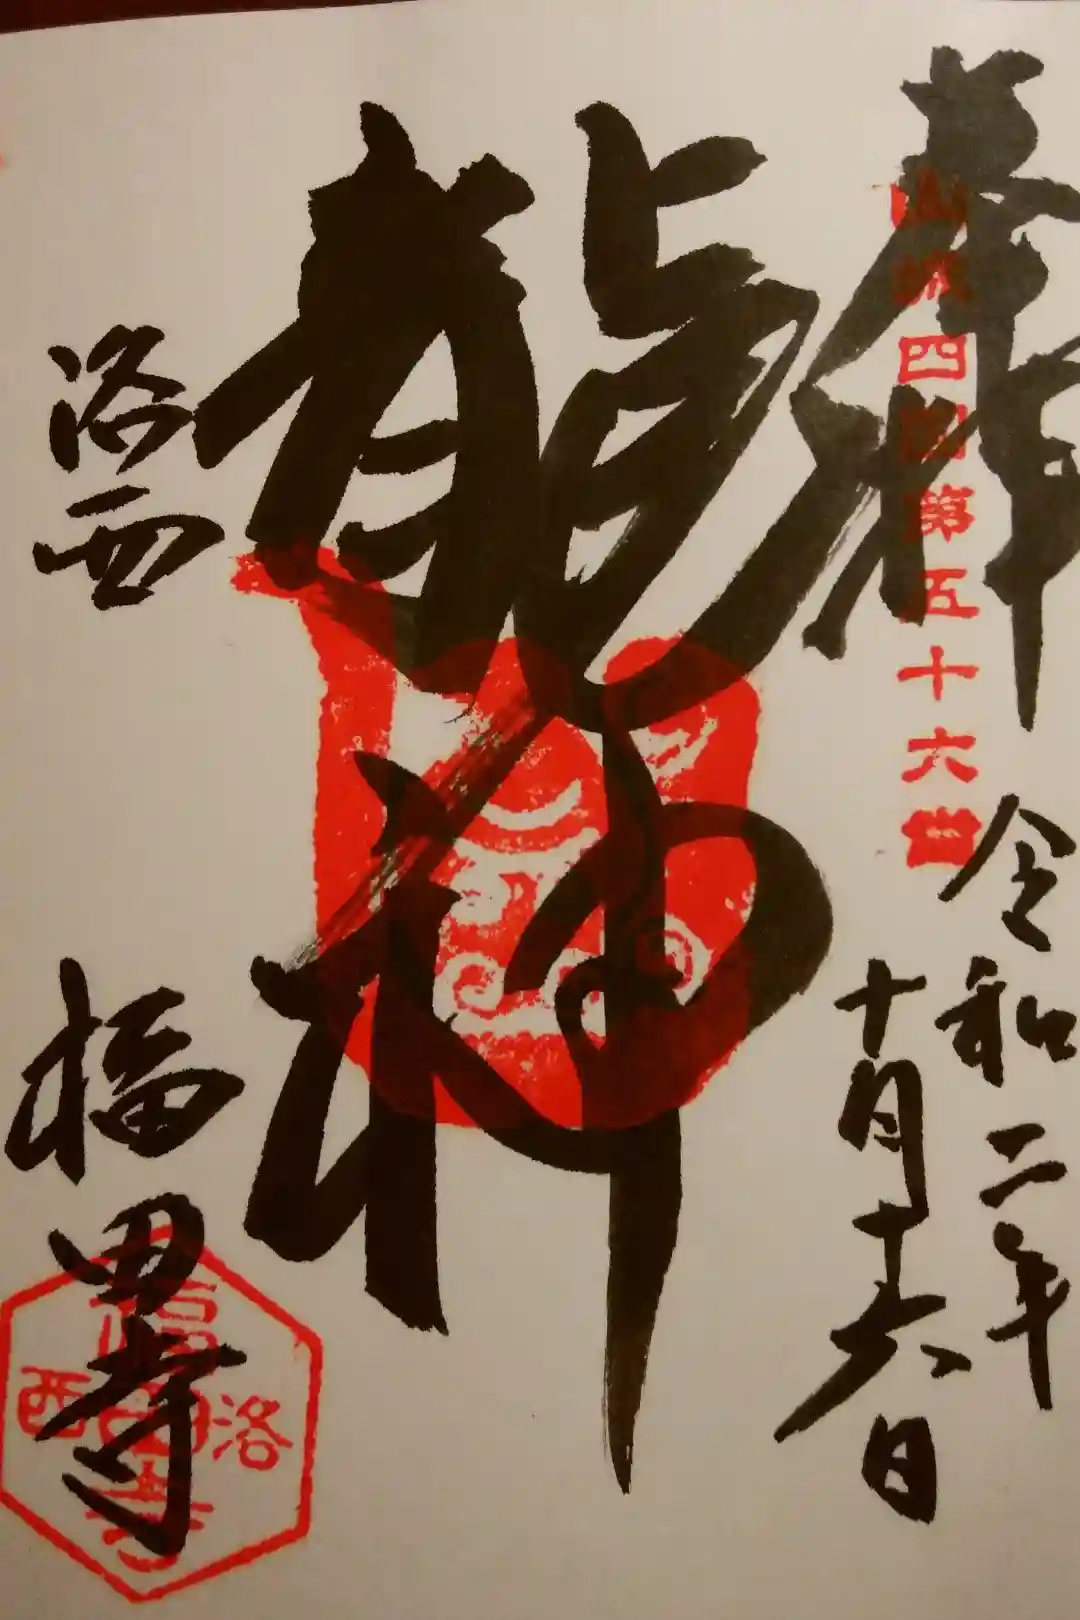 奉拝
山城四國第五十六番
令和二年
十月十六日
龍神
洛西
福田寺
洛西
福田寺